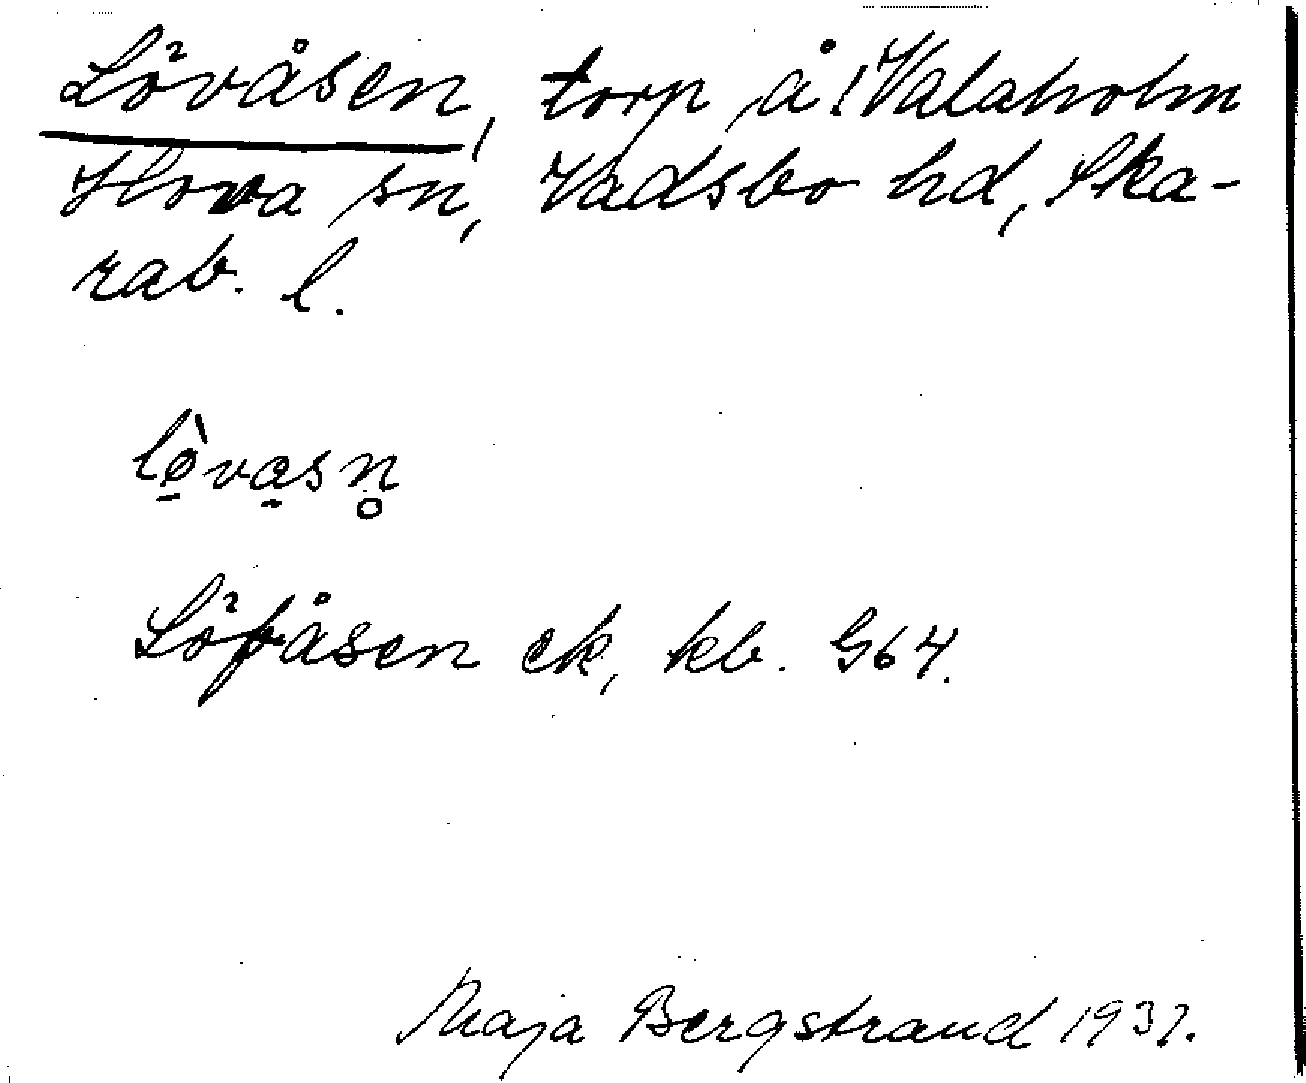 Lövåsen, torp å! Valaholm
Hova sn, Vadsbo hd, Ska-
rab. l.
lø̱̀va̱sn̥
Löfåsen ek, kb. G64.
Maja Bergstrand 1937.